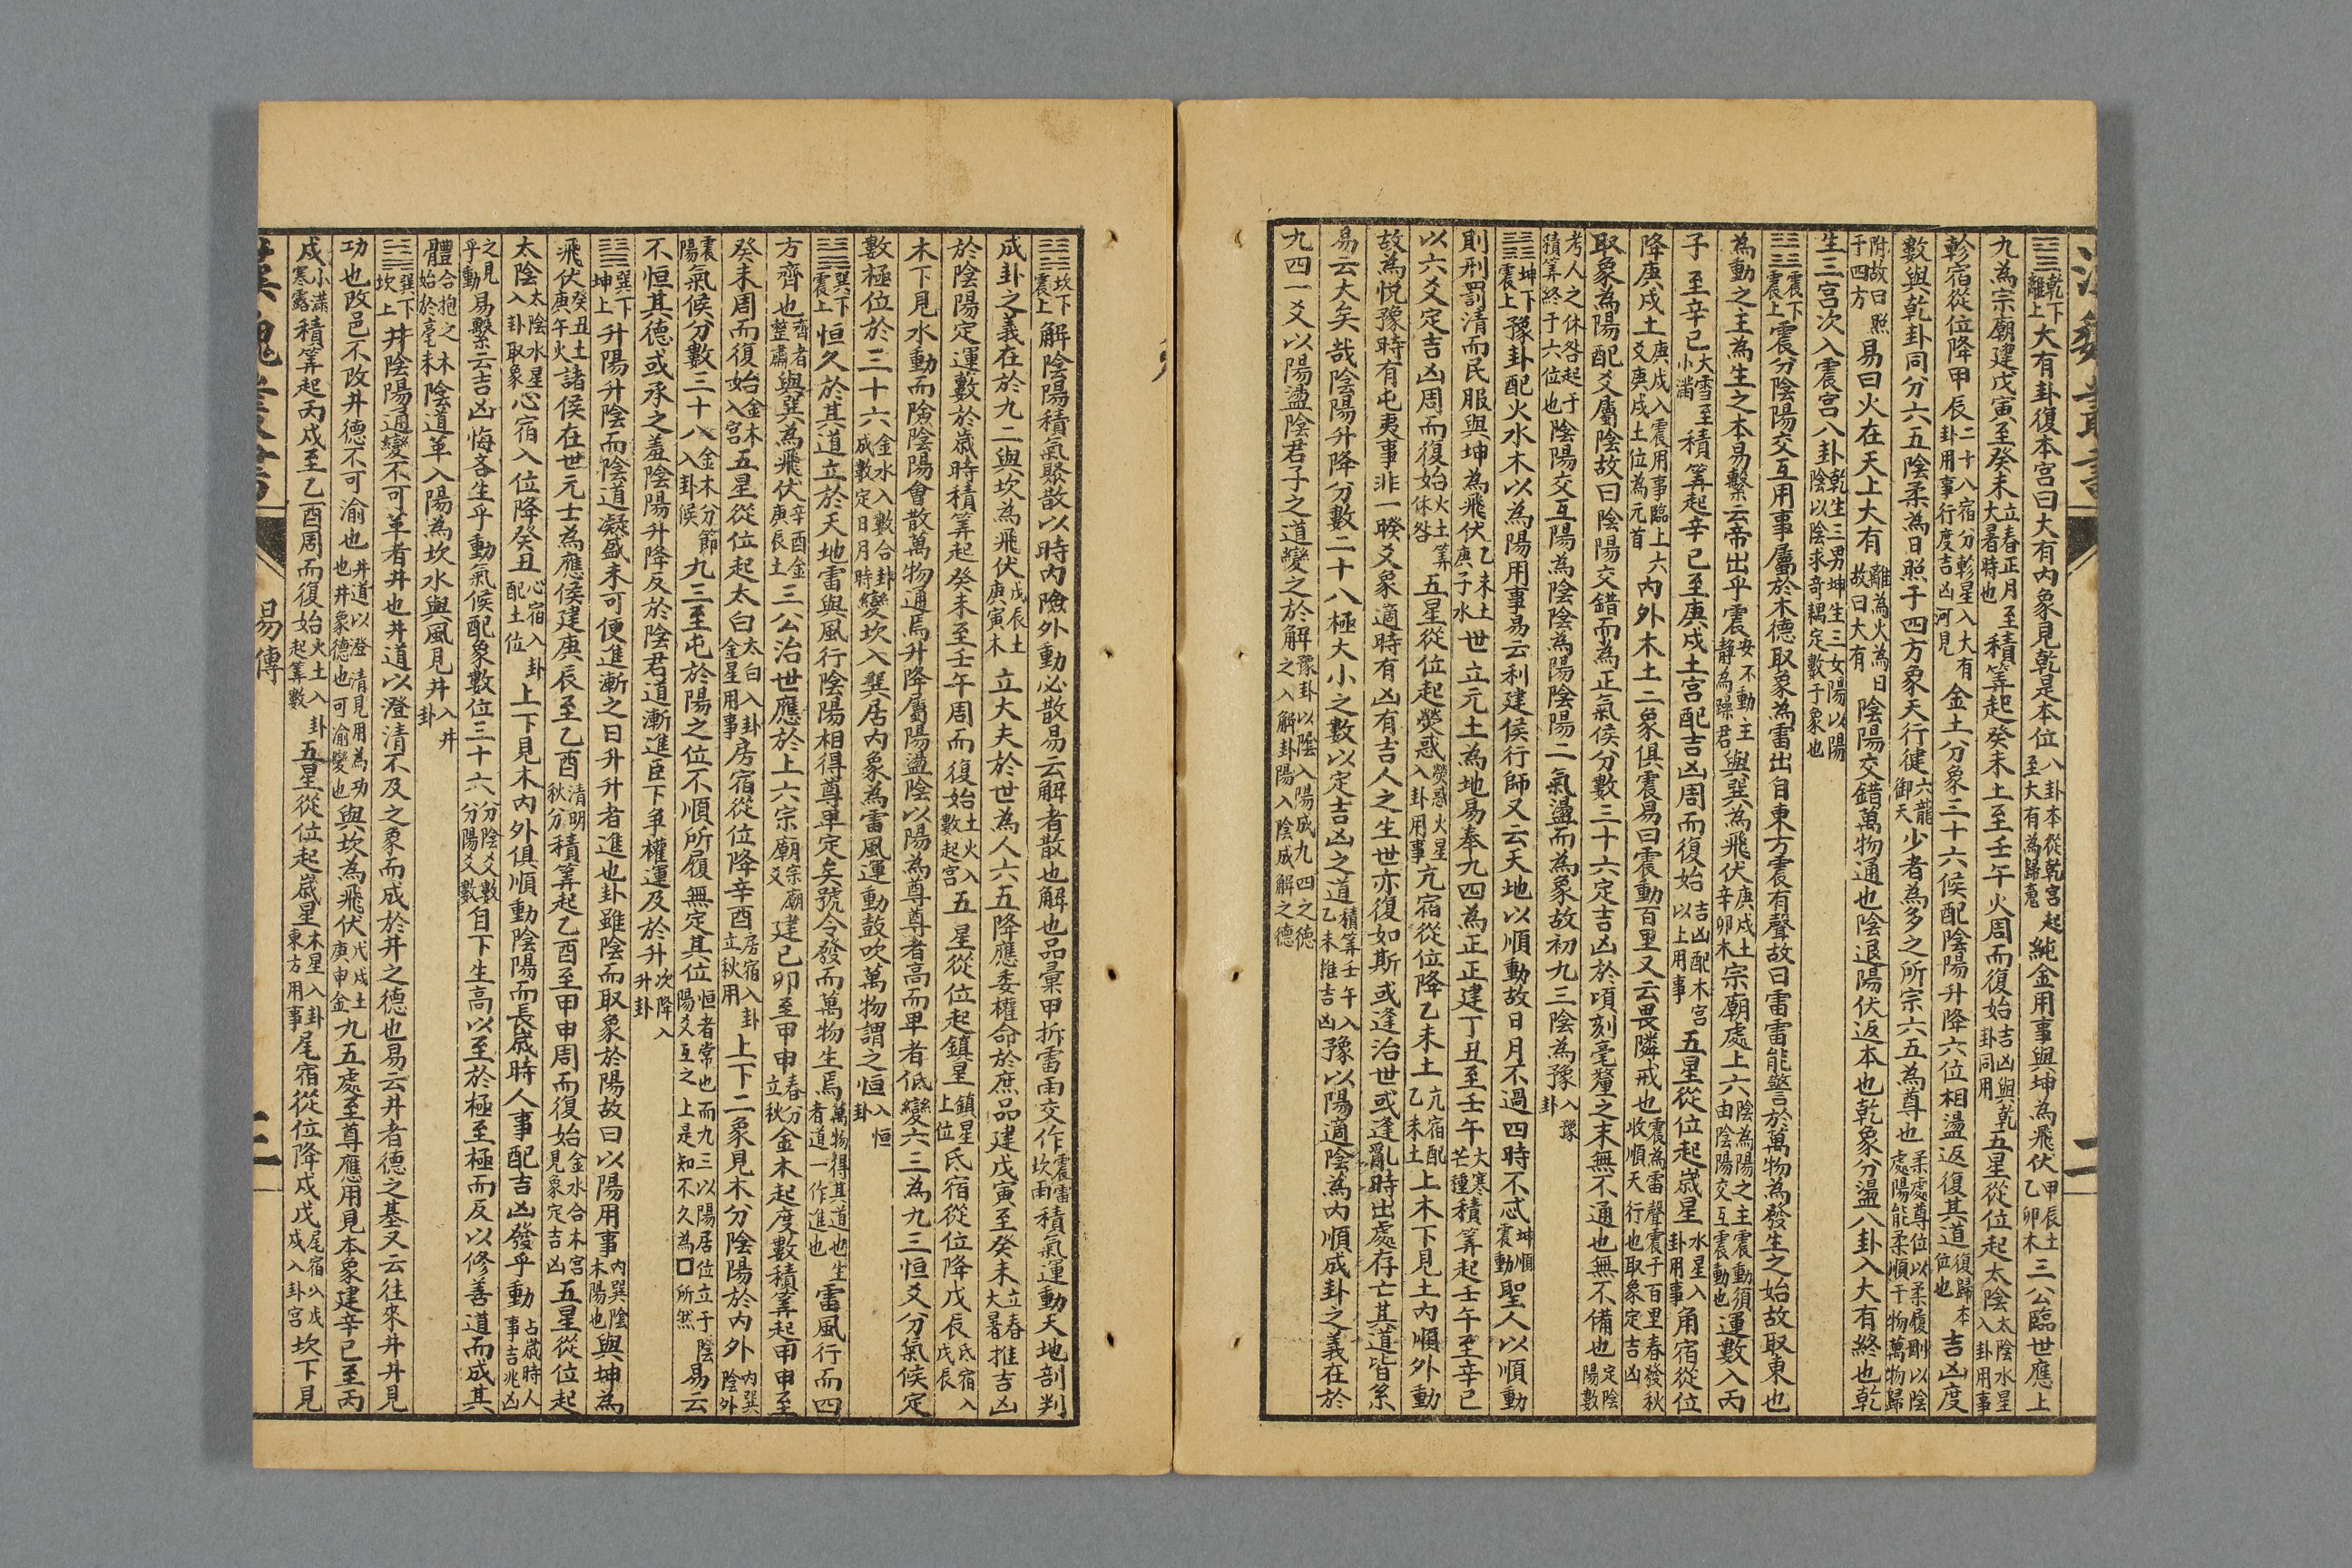 漢魏叢書 二
䷍乾下離上大有卦復本宮曰大有內象見乾是本位八卦本從乾宮起至大有為歸魂純金用事與坤為飛伏甲辰土乙卯木三公臨世應上
九為宗廟建戊寅至癸未立春正月至大暑時也積筭起癸未土至壬午火周而復始吉凶與乾卦同用五星從位起太陰太陰水星入卦用事
軫宿從位降甲辰二十八宿分軫星入大有卦用事行度吉凶河見金土分象三十六候配陰陽升降六位相盪返復其道復歸本位也吉凶度
數與乾卦同分六五陰柔為日照于四方象天行健六龍御天少者為多之所宗六五為尊也柔處尊位以柔履剛以陰處陽能柔順于物萬物歸
附故曰照于四方易曰火在天上大有離為火為日故曰大有陰陽交錯萬物通也陰退陽伏返本也乾象分盪八卦入大有終也乾
生三宮次入震宮八卦乾生三男坤生三女陽以陽陰以陰求奇耦定數于象也
䷲震下震上震分陰陽交互用事屬於木德取象為雷出自東方震有聲故曰雷雷能警於萬物為發生之始故取東也
為動之主為生之本易繫云帝出乎震安不動主靜為躁君與巽為飛伏庚戌土辛卯木宗廟處上六陰為陽之主震動須由陰陽交互震動也運數入丙
子至辛巳大雪至小滿積筭起辛巳至庚戌土宮配吉凶周而復始吉凶配木宮以上用事五星從位起歲星水星入卦用事角宿從位
降庚戌土庚戌入震用事臨上六爻庚戌土位為元首內外木土二象俱震易曰震動百里又云畏隣戒也震為雷聲震于百里春發秋收順天行也取象定吉凶
取象為陽配爻屬陰故曰陰陽交錯而為正氣侯分數三十六定吉凶於頃刻毫釐之末無不通也無不備也定陰陽數
考人之休咎起于積筭終于六位也陰陽交互陽為陰陰為陽陰陽二氣盪而為象故初九三陰為豫入豫卦
䷏坤下震上豫卦配火水木以為陽用事易云利建侯行師又云天地以順動故日月不過四時不忒坤順震動聖人以順動
則刑罰清而民服與坤為飛伏乙未土庚子水世立元土為地易奉九四為正正建丁丑至壬午大寒芒種積筭起壬午至辛巳
以六爻定吉凶周而復始火土筭休咎五星從位起熒惑熒惑火星入卦用事亢宿從位降乙未土亢宿配乙未土上木下見土內順外動
故為悅豫時有屯夷事非一睽爻象適時有凶有吉人之生世亦復如斯或逢治世或逢亂時出處存亡其道皆系
易云大矣哉陰陽升降分數二十八極大小之數以定吉凶之道積筭壬午入乙未推吉凶豫以陽適陰為內順成卦之義在於
九四一爻以陽盪陰君子之道變之於解豫卦以陰入陽成九四之德之入解卦陽入陰成解之德
䷧坎下震上解陰陽積氣聚散以時內險外動必散易云解者散也解也品彙甲拆雷雨交作震雷坎雨積氣運動天地剖判
成卦之義在於九二與坎為飛伏戊辰土庚寅木立大夫於世為人六五降應委權命於庶品建戊寅至癸未立春大暑推吉凶
於陰陽定運數於歲時積筭起癸未至壬午周而復始土火入數起宮五星從位起鎮星鎮星上位氐宿從位降戊辰氐宿入戊辰
木下見水動而險陰陽會散萬物通焉升降屬陽盪陰以陽為尊尊者高而卑者低變六三為九三恒爻分氣候定
數極位於三十六金水入數合卦成數定日月時變坎入巽居內象為雷風運動鼓吹萬物謂之恒入恒卦
䷟巽下震上恒久於其道立於天地雷與風行陰陽相得尊卑定矣號令發而萬物生焉萬物得其道也生者道一作進也雷風行而四
方齊也齊者整肅與巽為飛伏辛酉金庚辰土三公治世應於上六宗廟宗廟爻建己卯至甲申春分立秋金木起度數積筭起甲申至
癸未周而復始金木入宮五星從位起太白太白入卦金星用事房宿從位降辛酉房宿入卦立秋用上下二象見木分陰陽於內外內巽陰外
震陽氣候分數二十八金木分節入卦候九三至屯於陽之位不順所履無定其位恒者常也而九三以陽居位立于陰陽爻互之上是知不久為口所然易云
不恒其德或承之羞陰陽升降反於陰君道漸進臣下爭權運及於升次降入升卦
䷭巽下坤上升陽升陰而陰道凝盛未可便進漸之曰升升者進也卦雖陰而取象於陽故曰以陽用事內巽陰木陽也與坤為
飛伏癸丑土庚午火諸侯在世元士為應侯建庚辰至乙酉清明秋分積筭起乙酉至甲申周而復始金水合木宮見象定吉凶五星從位起
太陰太陰水星入卦取象心宿入位降癸丑心宿入卦配土位上下見木內外俱順動陰陽而長歲時人事配吉凶發乎動占歲時人事吉兆凶
之見乎動易繫云吉凶悔吝生乎動氣候配象數位三十六分陰爻數分陽爻數自下生高以至於極至極而反以修善道而成其
體合抱之木始於毫末陰道革入陽為坎水與風見井入井卦
䷯巽下坎上井陰陽通變不可革者井也井道以澄清不及之象而成於井之德也易云井者德之基又云往來井井見
功也改邑不改井德不可渝也井道以澄清見用為功也井象德也可渝變也與坎為飛伏戊戌土庚申金九五處至尊應用見本象建辛巳至丙
戌小滿寒露積筭起丙戌至乙酉周而復始火土入卦起筭數五星從位起歲星木星入卦東方用事尾宿從位降戊戌尾宿以戊戌入卦宮坎下見
漢魏叢書 易傳 三